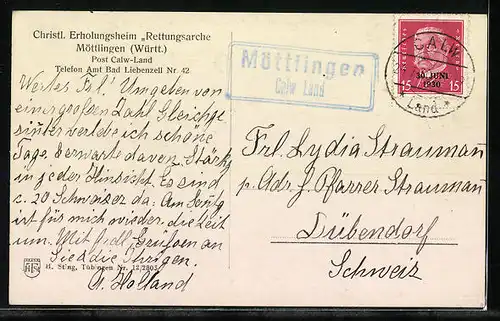 Christl. Erholungsheim „Rettungsarche
Möttlingen (Württ.)
Post Calw-Land
Telefon Amt Bad Liebenzell Nr. 42
Wertes Frl! Umgeben von
einer großen Zahl Gleichge-
sinter verlebe ich schöne
Tage. Erwarte davon Stärkg
in jeder Hinsicht. Es sind
c. 20 Schweizer da. Am Sontg
ist für mich wieder die Zeit
um. Mit frdl. Grüßen an
Sie & die Ihrigen.
Holland
H. Sting, Tübingen Nr. 12/2805
Möttlingen
Calw Land
CALW
Land
30. JUNI
1930
15 15
Frl. Lydia Straumann
p. Adr. H. Pfarrer Straumann
Dübendorf
Schweiz